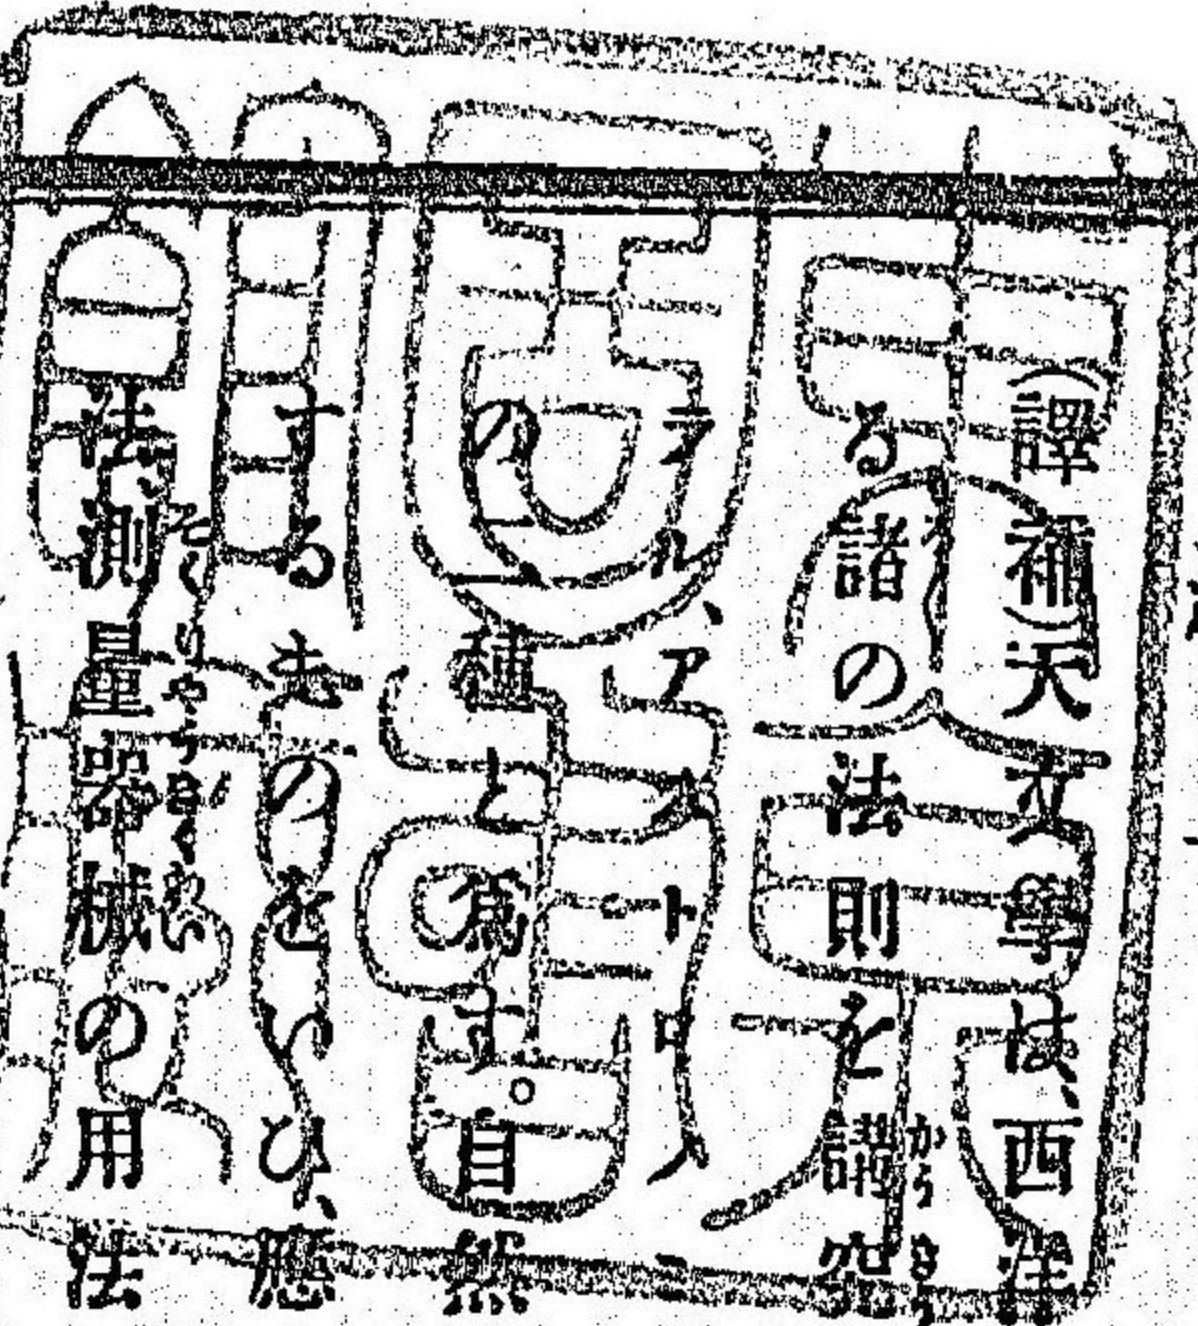 (譯補)天文學は、西洋
る諸の法則を講究
ラル、アストロノミ
の一種と爲す。自然
するものをいひ、應
法、測量器械の用法